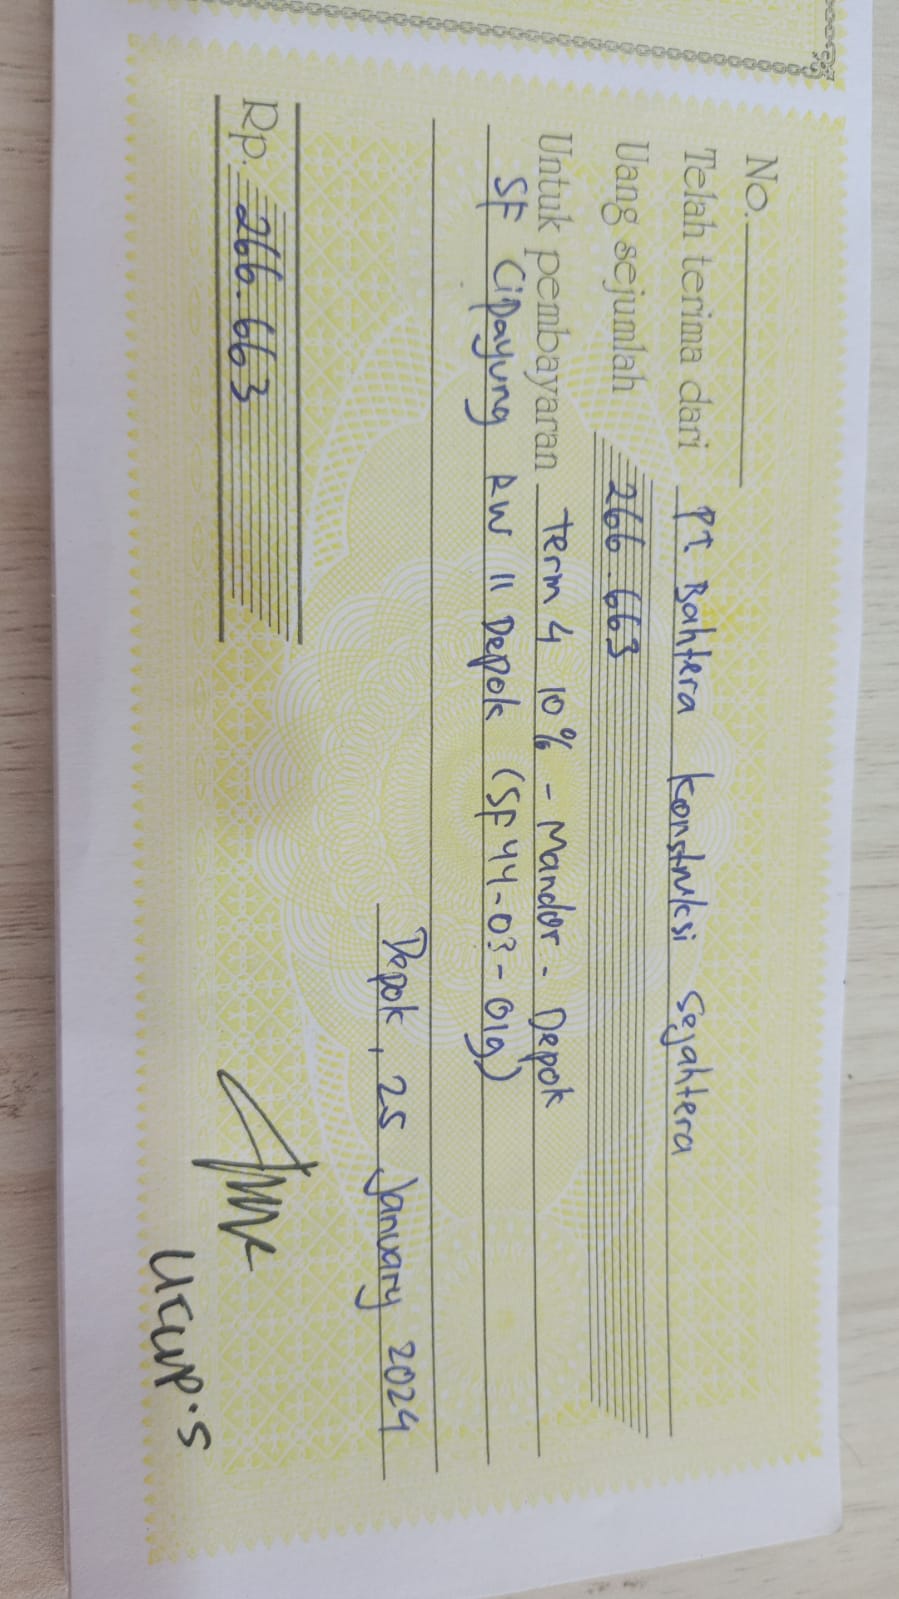 No.
Telah terima dari PT. Bahtera Konstruksi Sejahtera
Uang sejumlah 266.663
Untuk pembayaran term 4 10% - Mandor - Depok
SF Cipayung RW 11 Depok (SF 44-03-019)
Depok, 25 January 2024
Rp. 266.663
Ucup.S